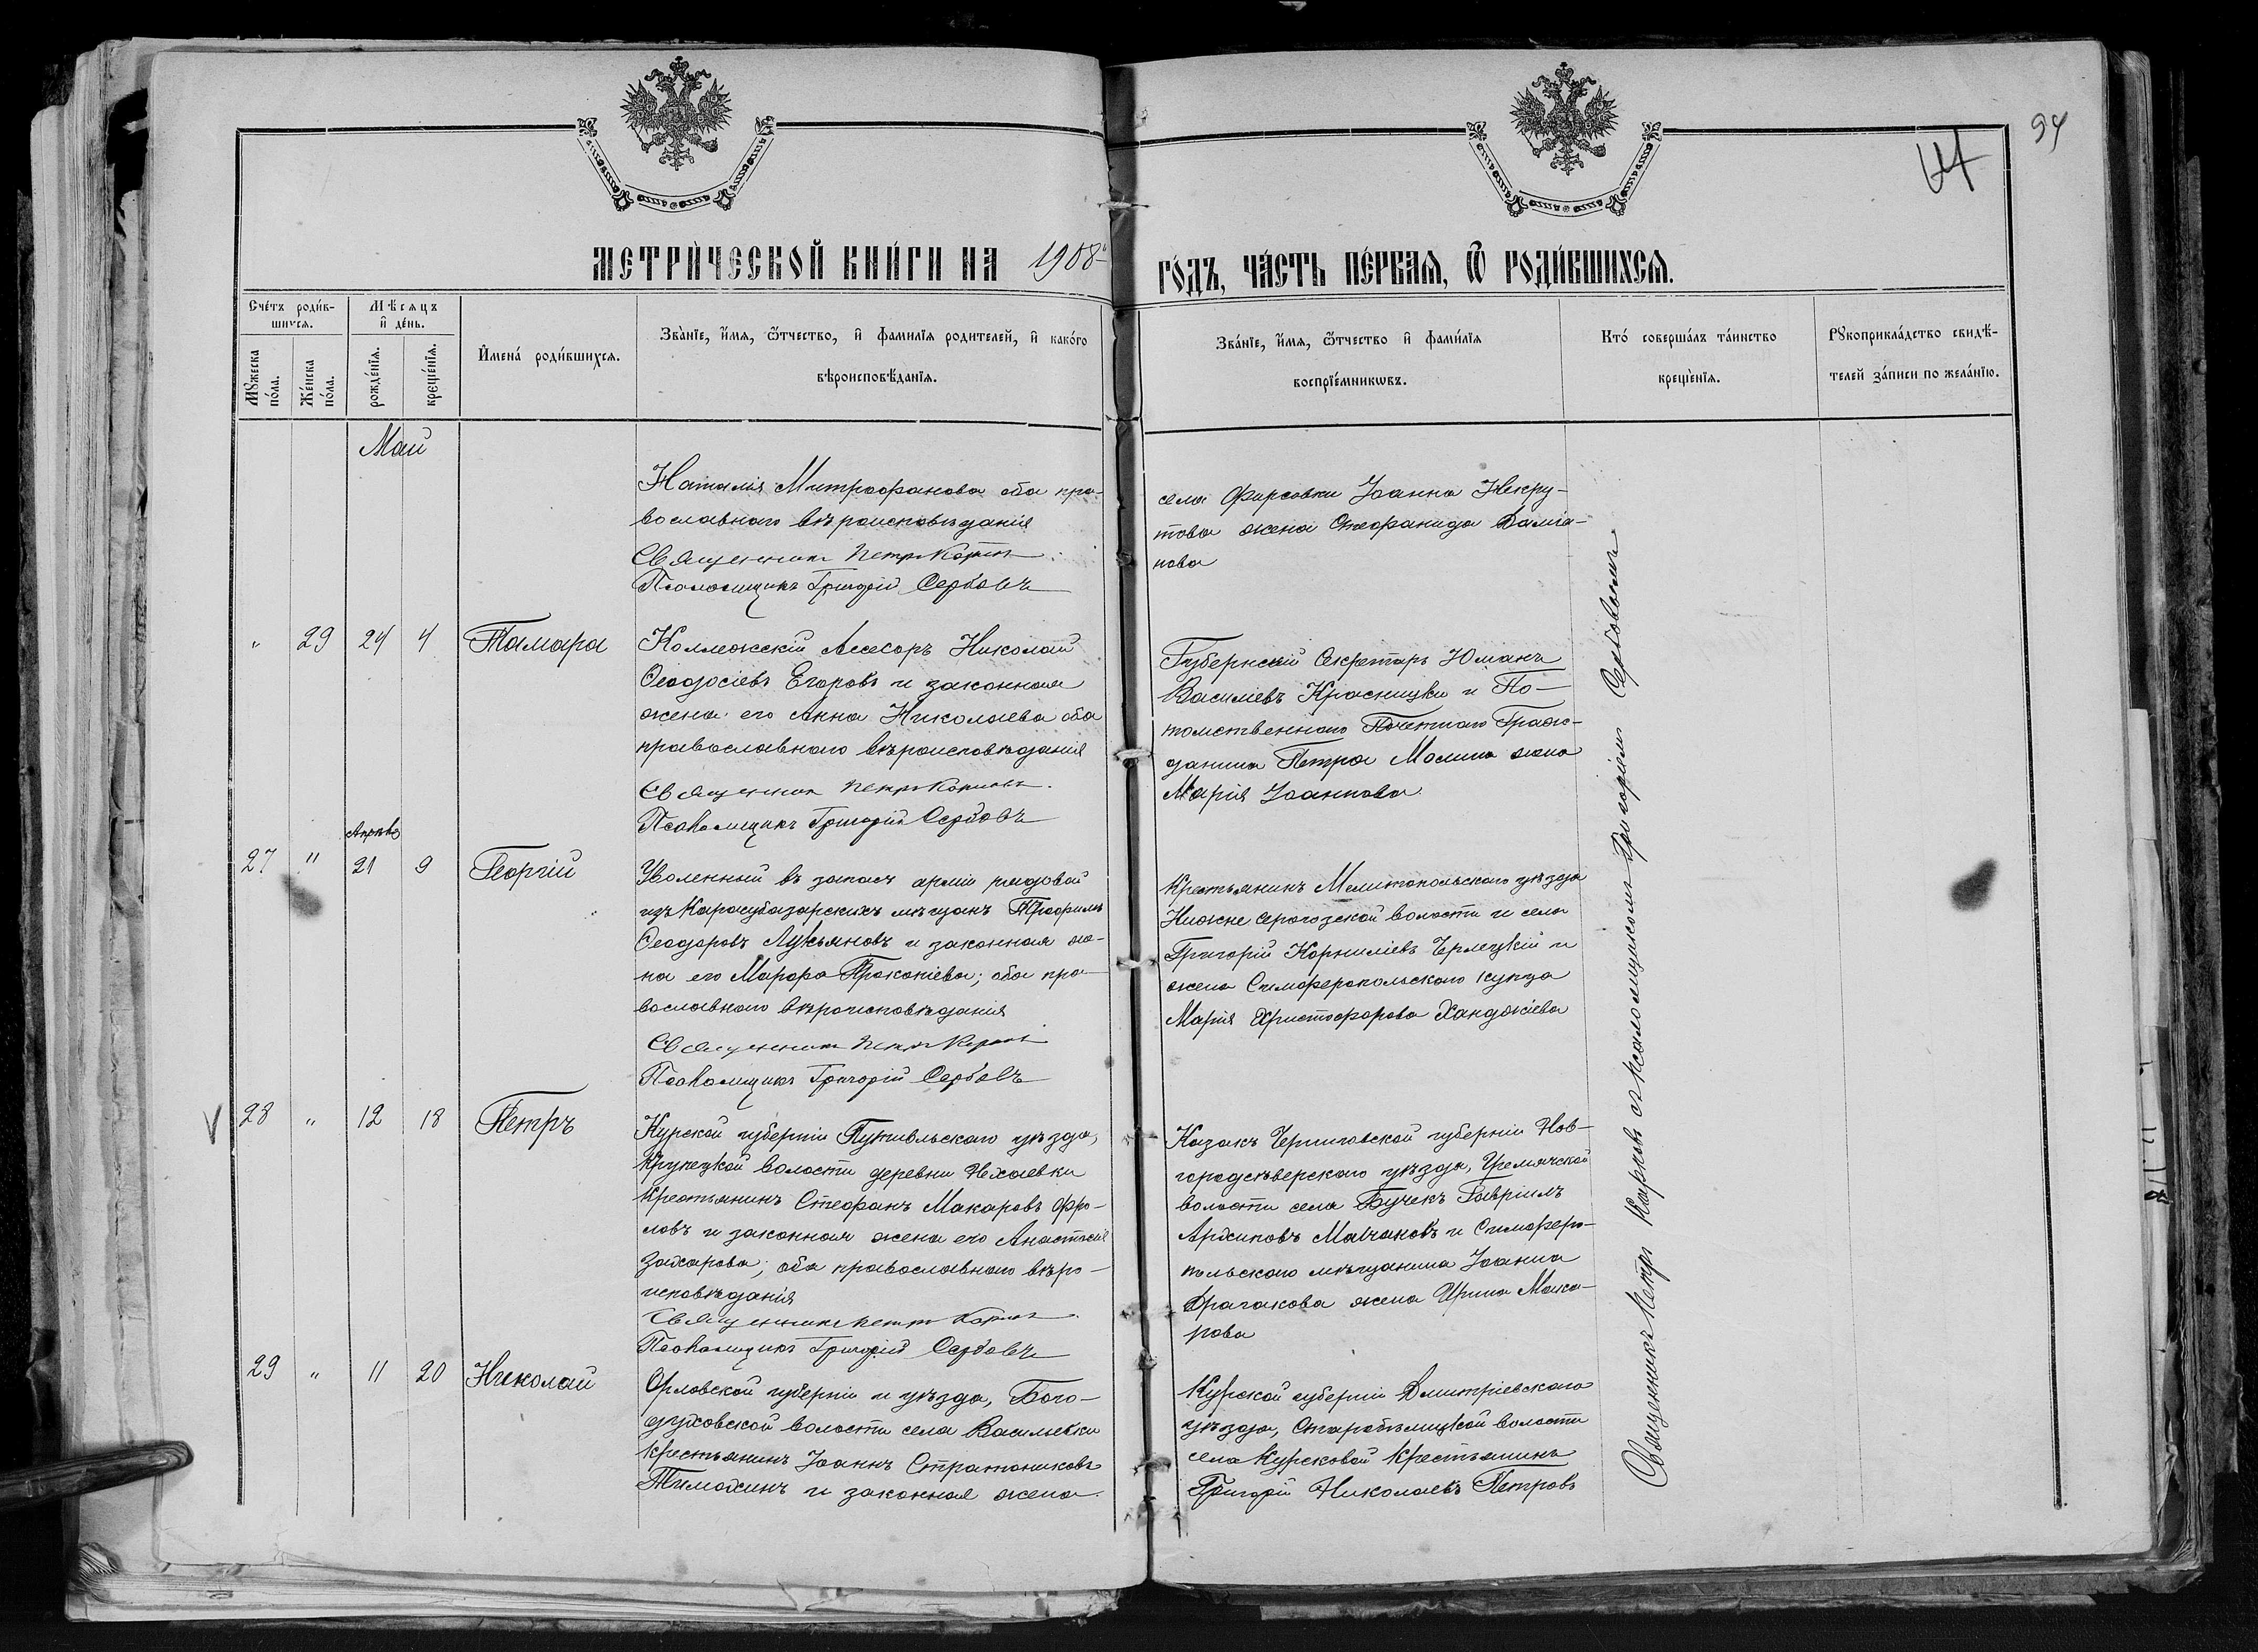 94
14
МЕТРИЧЕСКОЙ КНИГИ НА 1908
ГОДЪ, ЧАСТЬ ПЕРВАЯ, Ѿ РОДИВШИХСЯ.
Счетъ родившихся.
Мужеска пола.
Женска пола.
Мѣсяцъ и день.
рожденія.
крещенія.
Имена родившихся.
Званіе, имя, ѿтчество, и фамилія родителей, и какого
вѣроисповѣданія.
Званіе, имя, ѿтчество и фамилія
воспріемникѡвъ.
Кто совершалъ таинство
крещенія.
Рукоприкладство свидѣ-
телей записи по желанію.
Май
Наталія Митрофанова оба пра-
вославнаго вѣроисповѣданія
Священникъ Петръ
Псаломщикъ Григорій Сербовъ
села Фирсовки Іоанна Некру-
това жена Стефанида Даміа-
нова
" 29 24 4 Тамара
Коллежскій Ассесоръ Николай
Ѳеодосіевъ Егоровъ и законная
жена его Анна Николаева оба
православнаго вѣроисповѣданія
Священникъ Петръ
Псаломщикъ Григорій Сербовъ
Губернскій Секретарь Юліанъ
Василіевъ Красницки и По-
томственнаго Почетнаго Граж-
данина Петра Молина жена
Марія Іоаннова
Апрѣль
27 " 21 9 Георгій
Уволенный въ запасъ арміи рядовой
изъ Карасубазарскихъ мѣщанъ Трофимъ
Ѳеодоровъ Лукьяновъ и законная же-
на его Марфа Прокопіева; оба пра-
вославнаго вѣроисповѣданія
Священникъ Петръ
Псаломщикъ Григорій Сербовъ
Крестьянинъ Мелитопольскаго уѣзда
Нижне Серогозской волости и села
Григорій Корниліевъ и
жена Симферопольскаго купца
Марія Христофорова Ханджіева
V 28 " 12 18 Петръ
Курской губерніи Путивльскаго уѣзда,
Крупецкой волости деревни Нехаевки
крестьянинъ Стефанъ Макаровъ Фро-
ловъ и законная жена его Анастасія
Захарова; оба православнаго вѣро-
исповѣданія
Священникъ Петръ
Псаломщикъ Григорій Сербовъ
Казакъ Черниговской губерніи Нов-
городсѣверскаго уѣзда, Гремячской
волости села Бучекъ Гавріилъ
Архиповъ Мачаковъ и Симферо-
польскаго мѣщанина Іоанна
Драгакова жена Ирина Мака-
рова
29 " 11 20 Николай
Орловской губерніи и уѣзда, Бого-
духовской волости села Васильевки
крестьянинъ Іоаннъ Стратониковъ
Тимохинъ и законная жена
Курской губерніи Дмитріевскаго
уѣзда, Старобѣлицкой волости
села Курсковой крестьянинъ
Григорій Николаевъ Петровъ
Священникъ Петръ съ псаломщикомъ Григоріемъ Сербовымъ